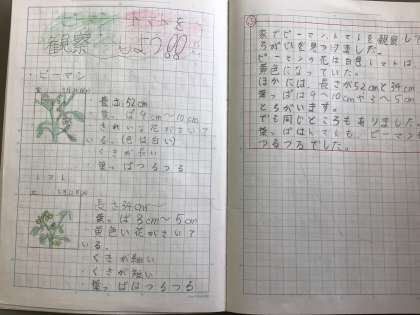 ピーマン トマトを
観察しよう!!
・ピーマン
長さ52cm
・葉っぱ9cm〜10cm
きれいな花がさいて
いる。(色は白い)
・くきが長い
・葉っぱつるつる
トマト
長さ34cm
葉っぱ3cm〜5cm
・黄色い花がさいて
いる。
・くきが細い
・くきが短い
・葉っぱはつるつる
家でピーマン、トマトを観察して
ちがいを見つけました。
ピーマンの花は白色トマトは
黄色になっていた。
ほかたには、長さが52cmと34cm
葉っぱは9〜10cmや3〜5cm
とちがいます。
でも同じところもありました。
葉っぱはトマトも、ピーマン
つるつるでした。